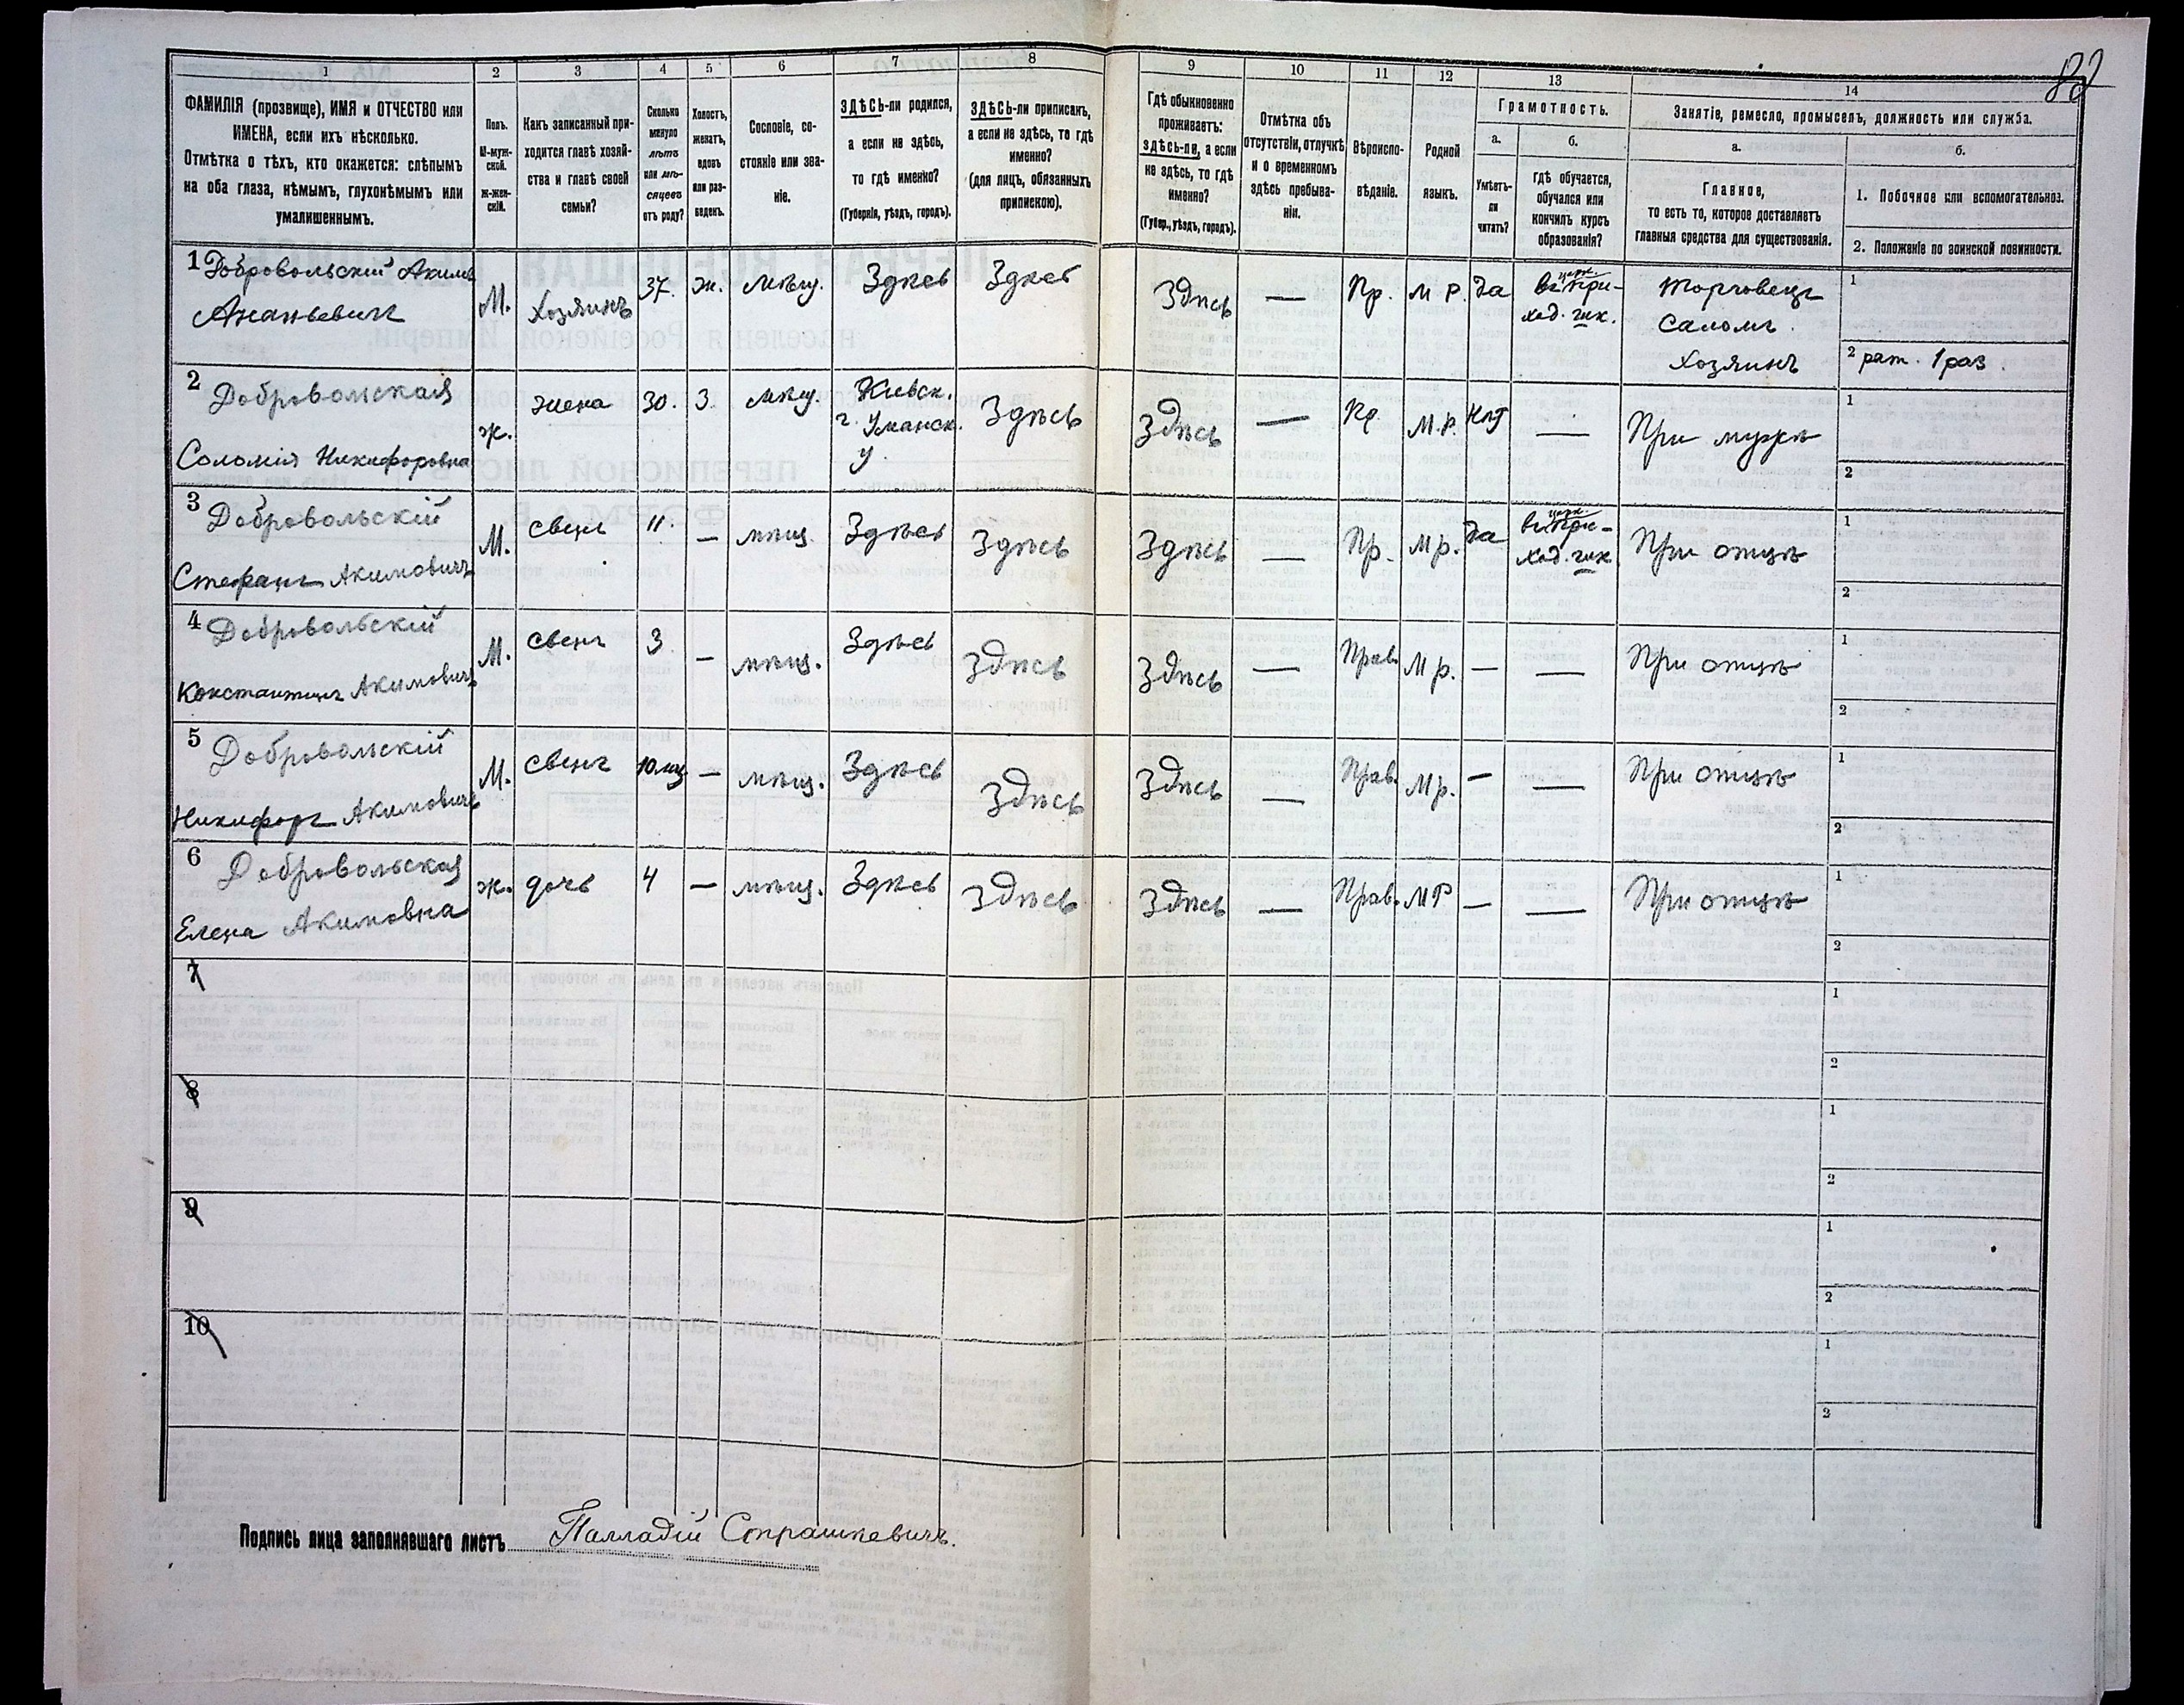 82
1 2 3 4 5 6 7 8 9 10 11 12 13 14
ФАМИЛІЯ (прозвище), ИМЯ и ОТЧЕСТВО или
ИМЕНА, если ихъ нѣсколько.
Отмѣтка о тѣхъ, кто окажется: слѣпымъ
на оба глаза, нѣмымъ, глухонѣмымъ или
умалишеннымъ.
Полъ.
М-муж-
ской.
ж-жен-
скій.
Какъ записанный при-
ходится главѣ хозяй-
ства и главѣ своей
семьи?
Сколько
минуло
лѣтъ
или мѣ-
сяцевъ
отъ роду?
Холостъ,
женатъ,
вдовъ
или раз-
веденъ.
Сословіе, со-
стояніе или зва-
ніе.
ЗДѢСЬ-ли родился,
а если не здѣсь,
то гдѣ именно?
(Губернія, уѣздъ, городъ).
ЗДѢСЬ-ли приписанъ,
а если не здѣсь, то гдѣ
именно?
(для лицъ, обязанныхъ
припискою).
Гдѣ обыкновенно
проживаетъ:
здѣсь-ли, а если
не здѣсь, то гдѣ
именно?
(Губер., уѣздъ, городъ).
Отмѣтка объ
отсутствіи, отлучкѣ
и о временномъ
здѣсь пребыва-
ніи.
Вѣроиспо-
вѣданіе.
Родной
языкъ.
Грамотность.
а.
Умѣетъ-
ли
читать?
б.
Гдѣ обучается,
обучался или
кончилъ курсъ
образованія?
Занятіе, ремесло, промыселъ, должность или служба.
а.
Главное,
то есть то, которое доставляетъ
главныя средства для существованія.
б.
1. Побочное или вспомогательное.
2. Положеніе по воинской повинности.
1 Добровольскій Акимъ
Ананьевичъ
М. Хозяинъ 37. ж. мѣщ. Здѣсь Здѣсь Здѣсь — Пр. М р. Да
церк.
въ при-
ход. шк.
Торговецъ
саломъ.
Хозяинъ
1
2 рат. 1 раз.
2 Добровольская
Соломія Никифоровна
ж. жена 30. З. мѣщ.
Кіевск.
г. Уманск.
у.
Здѣсь Здѣсь — Пр. М.р. Нѣт — При мужѣ
1
2
3 Добровольскій
Стефанъ Акимовичъ
М. свенъ 11. — мѣщ. Здѣсь Здѣсь Здѣсь — Пр. Мр. Да
церк.
въ при-
ход. шк.
При отцѣ
1
2
4 Добровольскій
Константинъ Акимовичъ
М. свенъ 3 — мѣщ. Здѣсь Здѣсь Здѣсь — Прав. Мр. — — При отцѣ
1
2
5 Добровольскій
Никифоръ Акимовичъ
М. свенъ 10 мц — мѣщ. Здѣсь Здѣсь Здѣсь — Прав. Мр. — — При отцѣ
1
2
6 Добровольская
Елена Акимовна
ж. дочь 4 — мѣщ. Здѣсь Здѣсь Здѣсь — Прав. МР — — При отцѣ
1
2
7
1
2
8
1
2
9
1
2
10
1
2
Подпись лица заполнявшаго листъ Палладій Страшкевичъ.